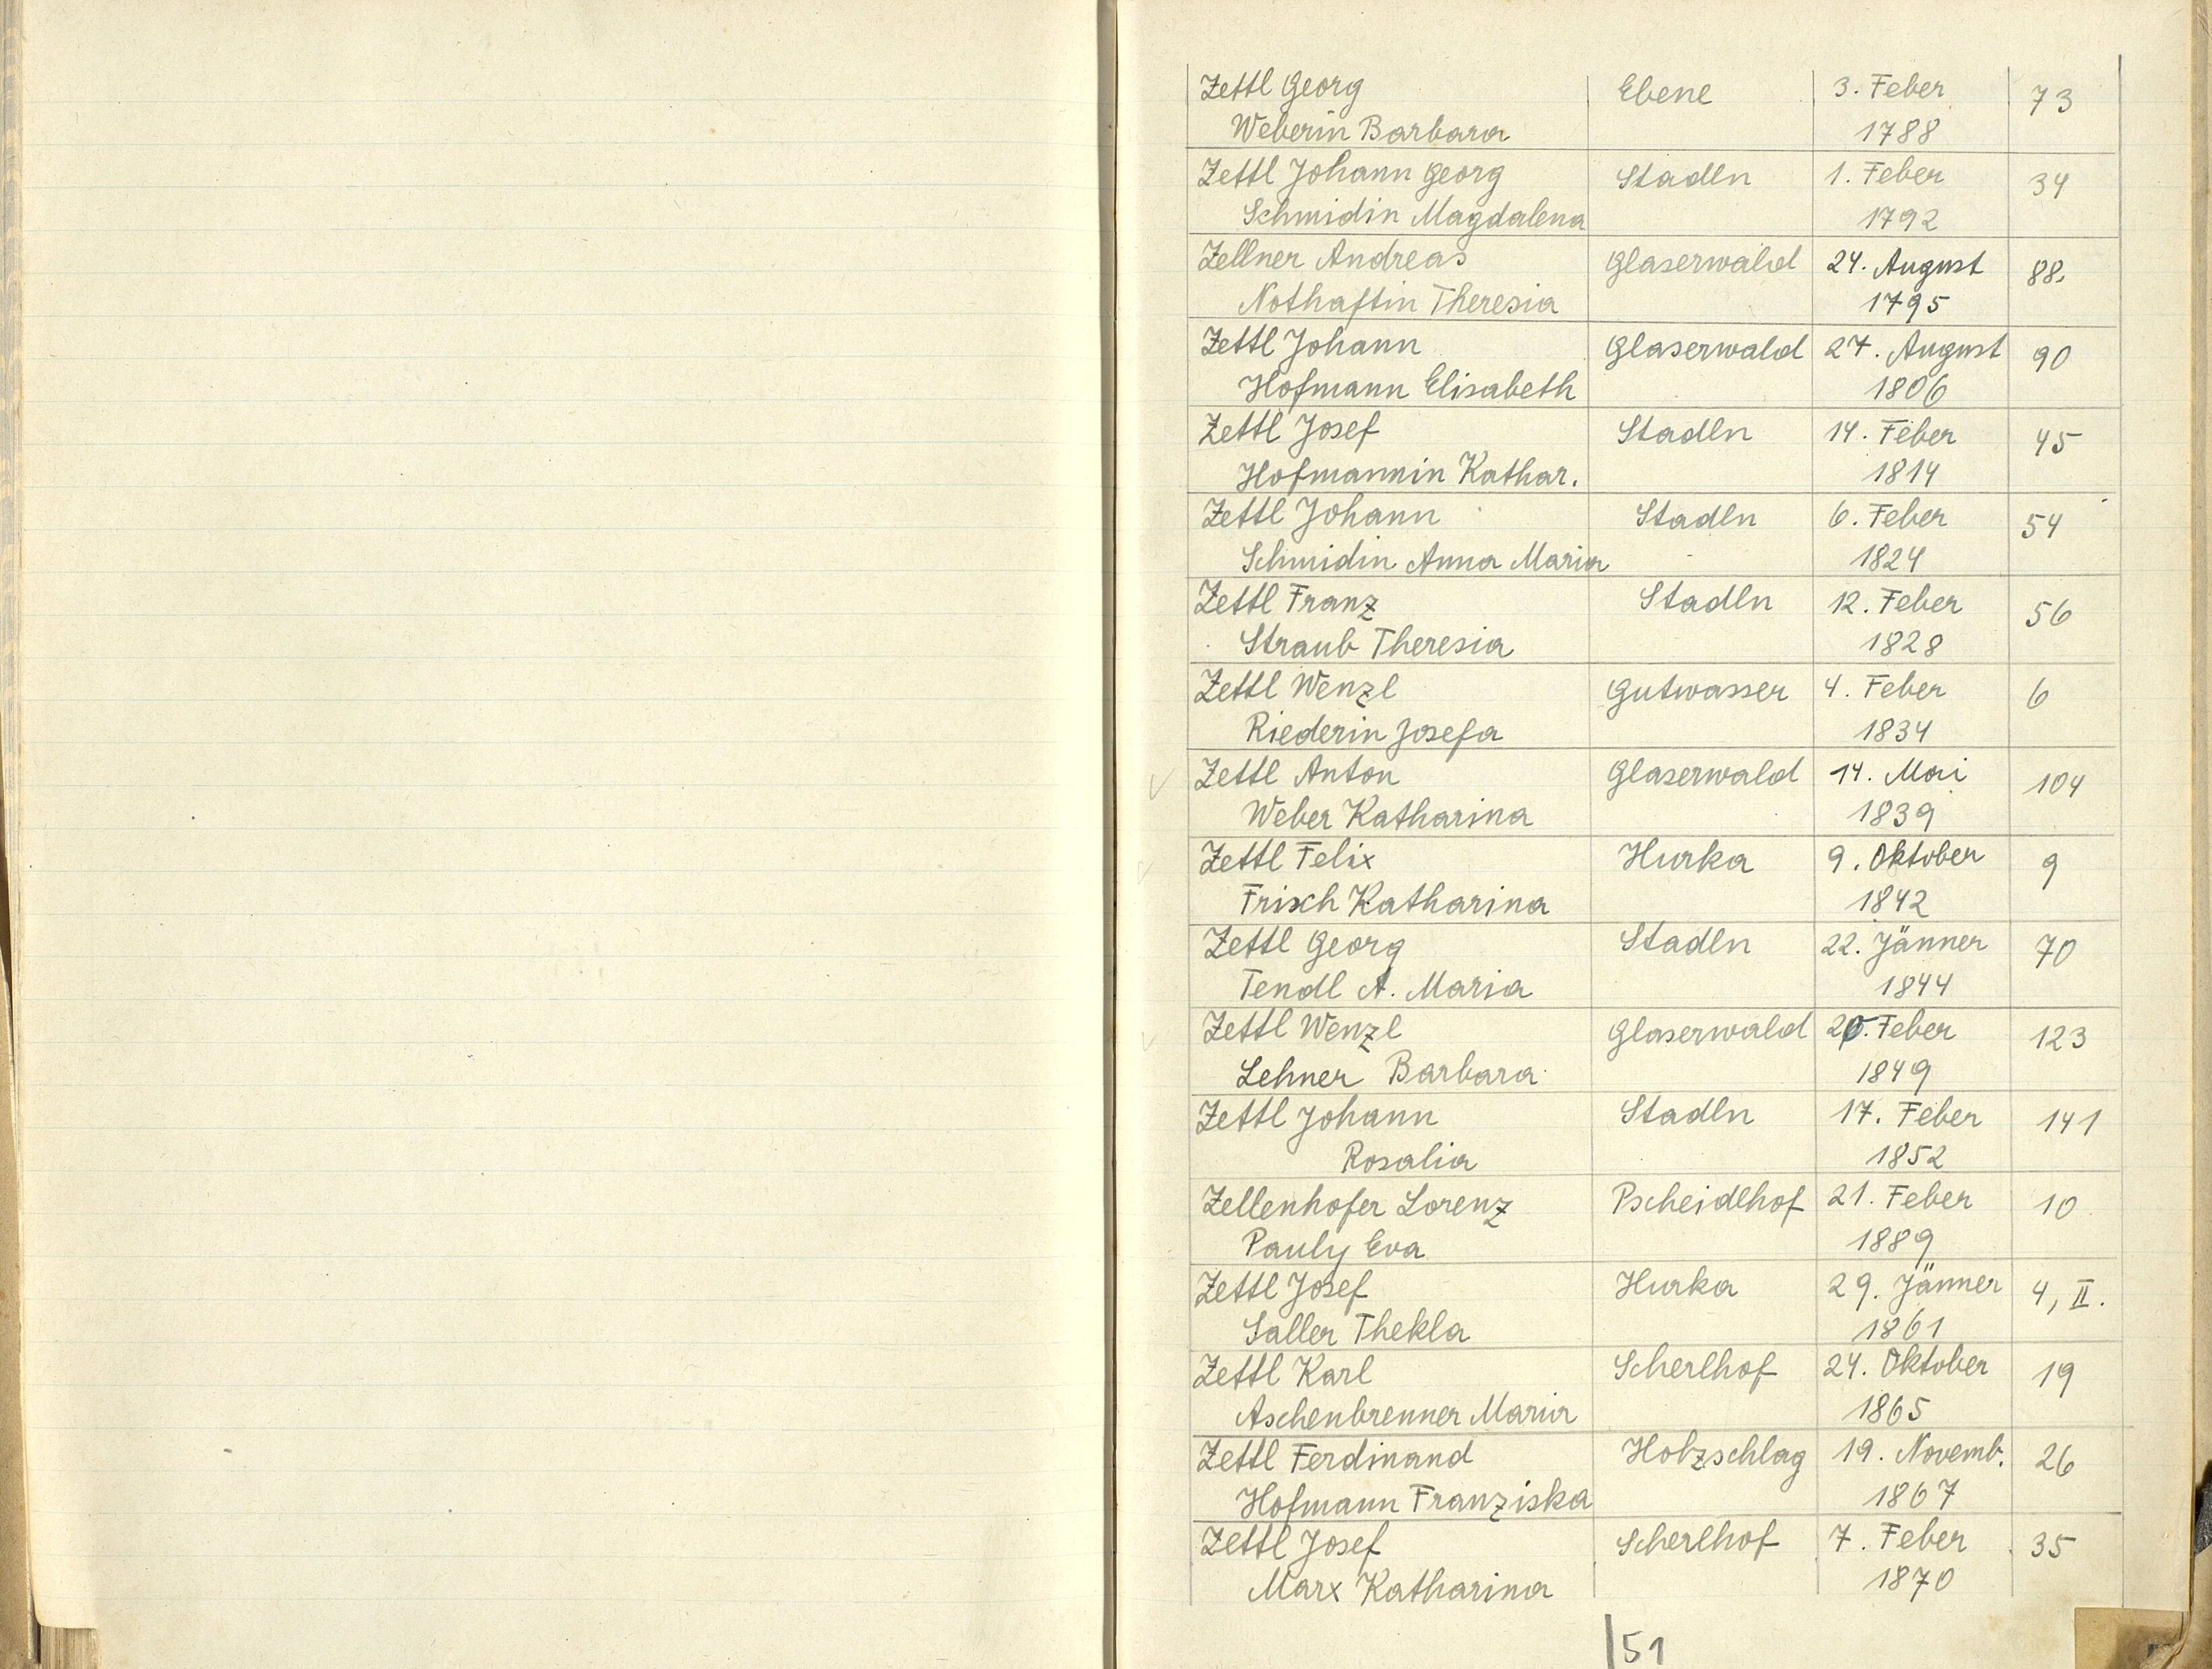 Zettl Georg Ebene 3. Feber 73
Weberin Barbara 1788
Zettl Johann Georg Stadln 1. Feber 34
Schmidin Magdalena 1792
Zellner Andreas Glaserwald 24. August 88.
Nothaftin Theresia 1795
Zettl Johann Glaserwald 27. August 90
Hofmann Elisabeth 1806
Zettl Josef Stadln 14. Feber 45
Hofmannin Kathar. 1814
Zettl Johann Stadln 6. Feber 54
Schmidin Anna Maria 1824
Zettl Franz Stadln 12. Feber 56
Straub Theresia 1828
Zettl Wenzl Gutwasser 4. Feber 6
Riederin Josefa 1834
Zettl Anton Glaserwald 14. Mai 104
Weber Katharina 1839
Zettl Felix Hurka 9. Oktober 9
Frisch Katharina 1842
Zettl Georg Stadln 22. Jänner 70
Tendl A. Maria 1844
Zettl Wenzl Glaserwald Feber 123
Lehner Barbara 1849
Zettl Johann Stadln 17. Feber 141
Rosalia 1852
Zellenhofer Lorenz Pscheidlhof 21. Feber 10
Pauly Eva 1889
Zettl Josef Hurka 29. Jänner 4, II.
Saller Thekla 1861
Zettl Karl Scherlhof 24. Oktober 19
Aschenbrenner Maria 1865
Zettl Ferdinand Holzschlag 19. Novemb. 26
Hofmann Franziska 1867
Zettl Josef Scherlhof 7. Feber 35
Marx Katharina 1870
51